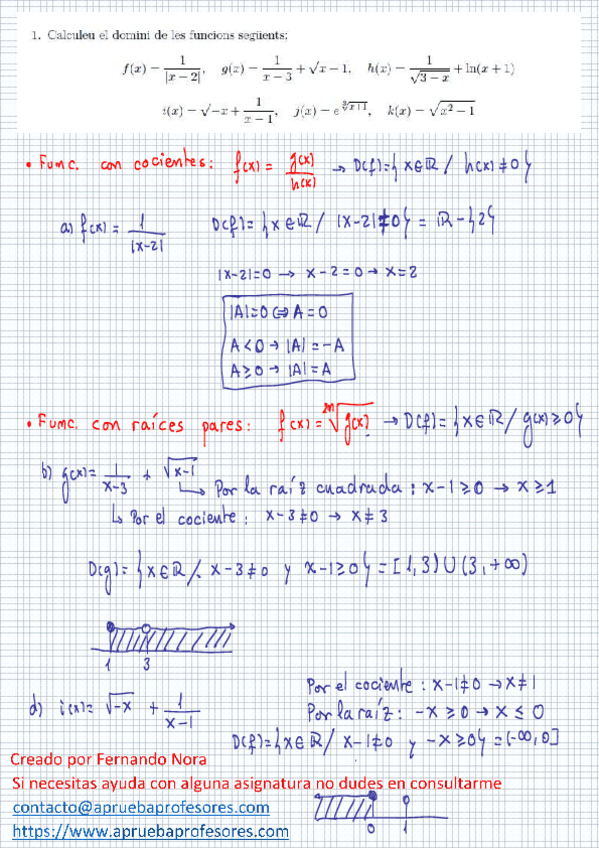 1. Calculeu el domini de les funcions següents:
f(x) = 1/|x−2|, g(x) = 1/(x−3) + √x−1, h(x) = 1/√(3−x) + ln(x+1)
i(x) = √−x + 1/(x−1), j(x) = e^∛(x+1), k(x) = √(x²−1)
• Func. con cocientes: f(x) = g(x)/h(x) → D(f)={x∈ℝ / h(x)≠0}
a) f(x) = 1/|x-2| D(f)={x∈ℝ / |x-2|≠0} = ℝ-{2}
|x-2|=0 → x-2=0 → x=2
|A|=0 ⇔ A=0
A<0 → |A|=-A
A≥0 → |A|=A
• Func. con raíces pares: f(x) = ²ⁿ√g(x) → D(f)={x∈ℝ / g(x)≥0}
b) g(x)= 1/(x-3) + √(x-1)
↳ Por la raíz cuadrada: x-1≥0 → x≥1
↳ Por el cociente: x-3≠0 → x≠3
D(g)={x∈ℝ /. x-3≠0 y x-1≥0} = [1,3)∪(3,+∞)
1 3
d) i(x)= √-x + 1/(x-1)
Por el cociente: x-1≠0 → x≠1
Por la raíz: -x≥0 → x≤0
D(f)={x∈ℝ / x-1≠0 y -x≥0} = (-∞,0]
Creado por Fernando Nora
Si necesitas ayuda con alguna asignatura no dudes en consultarme
contacto@apruebaprofesores.com
https://www.apruebaprofesores.com
0 1